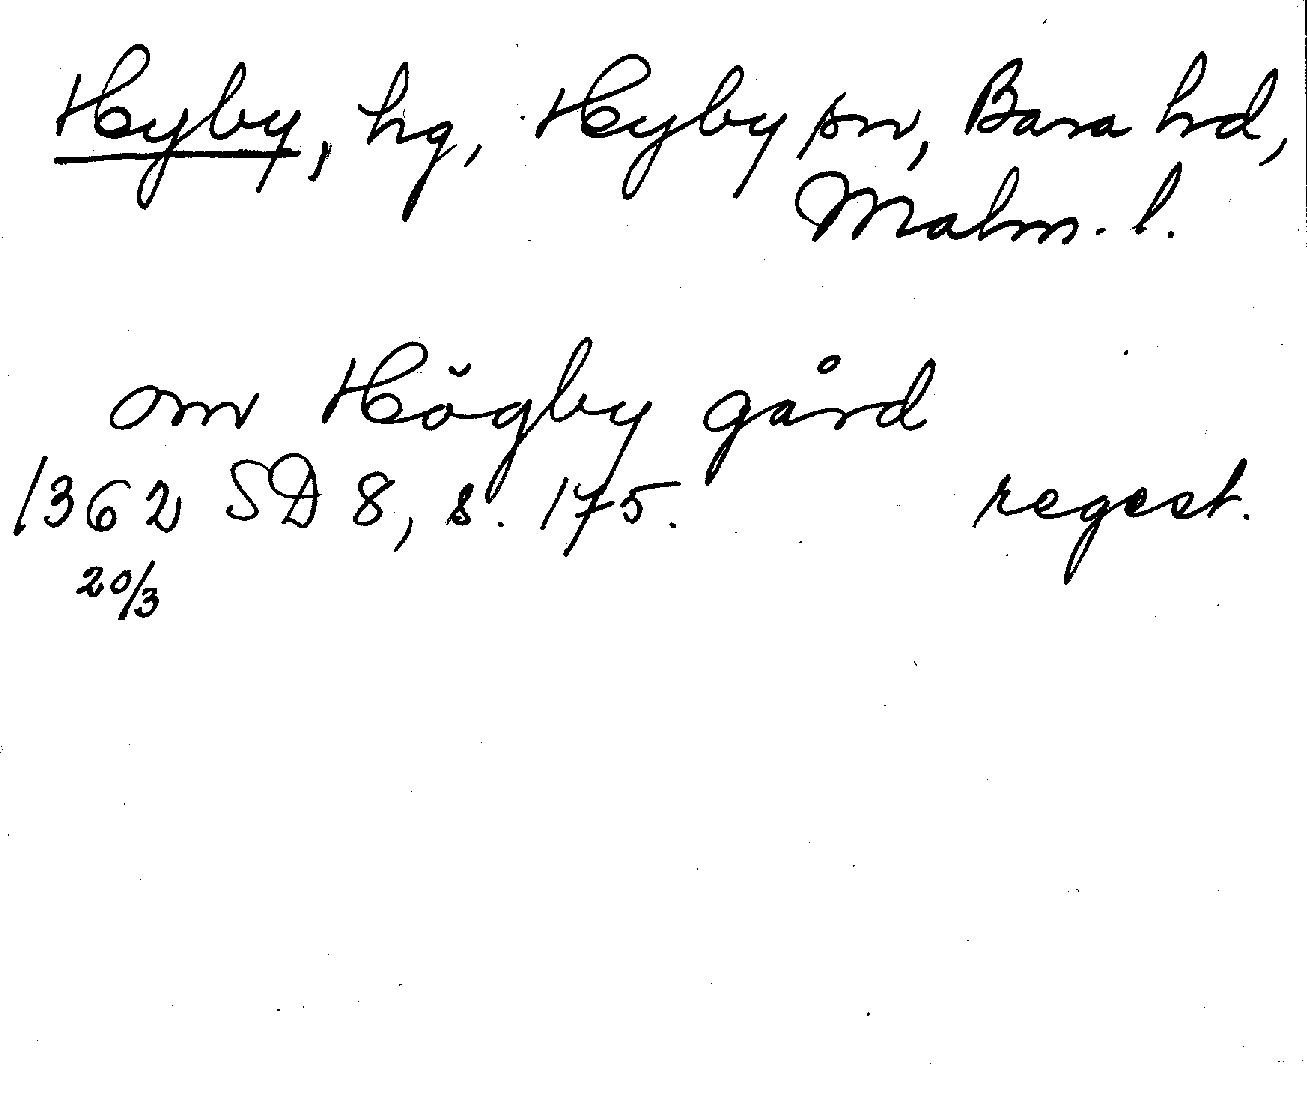 Hyby, hg, Hyby sn, Bara hd,
Malm. l.
om Högby gård
1362 SD 8, s. 175. regest.
20/3